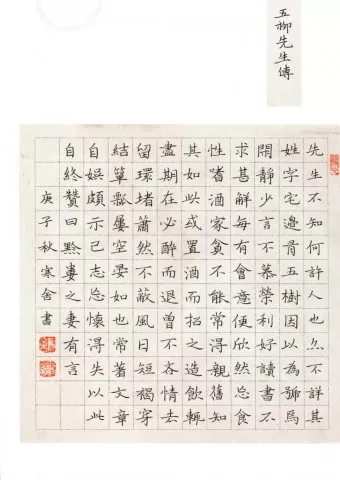 五柳先生傳
先生不知何許人也亦不詳其
姓字宅邊有五樹因以為號焉
閑靜少言不慕榮利好讀書不
求甚解每有會意便欣然忘食
性嗜酒家貧不能常得親舊知
其如此或置酒而招之造飲輒
盡期在必醉而退曾不吝情去
留環堵蕭然不蔽風日短褐穿
結簞瓢屢空晏如也常著文章
自娛頗示己志忘懷得失以此
自終贊曰黔婁之妻有言
庚子秋寒舍書